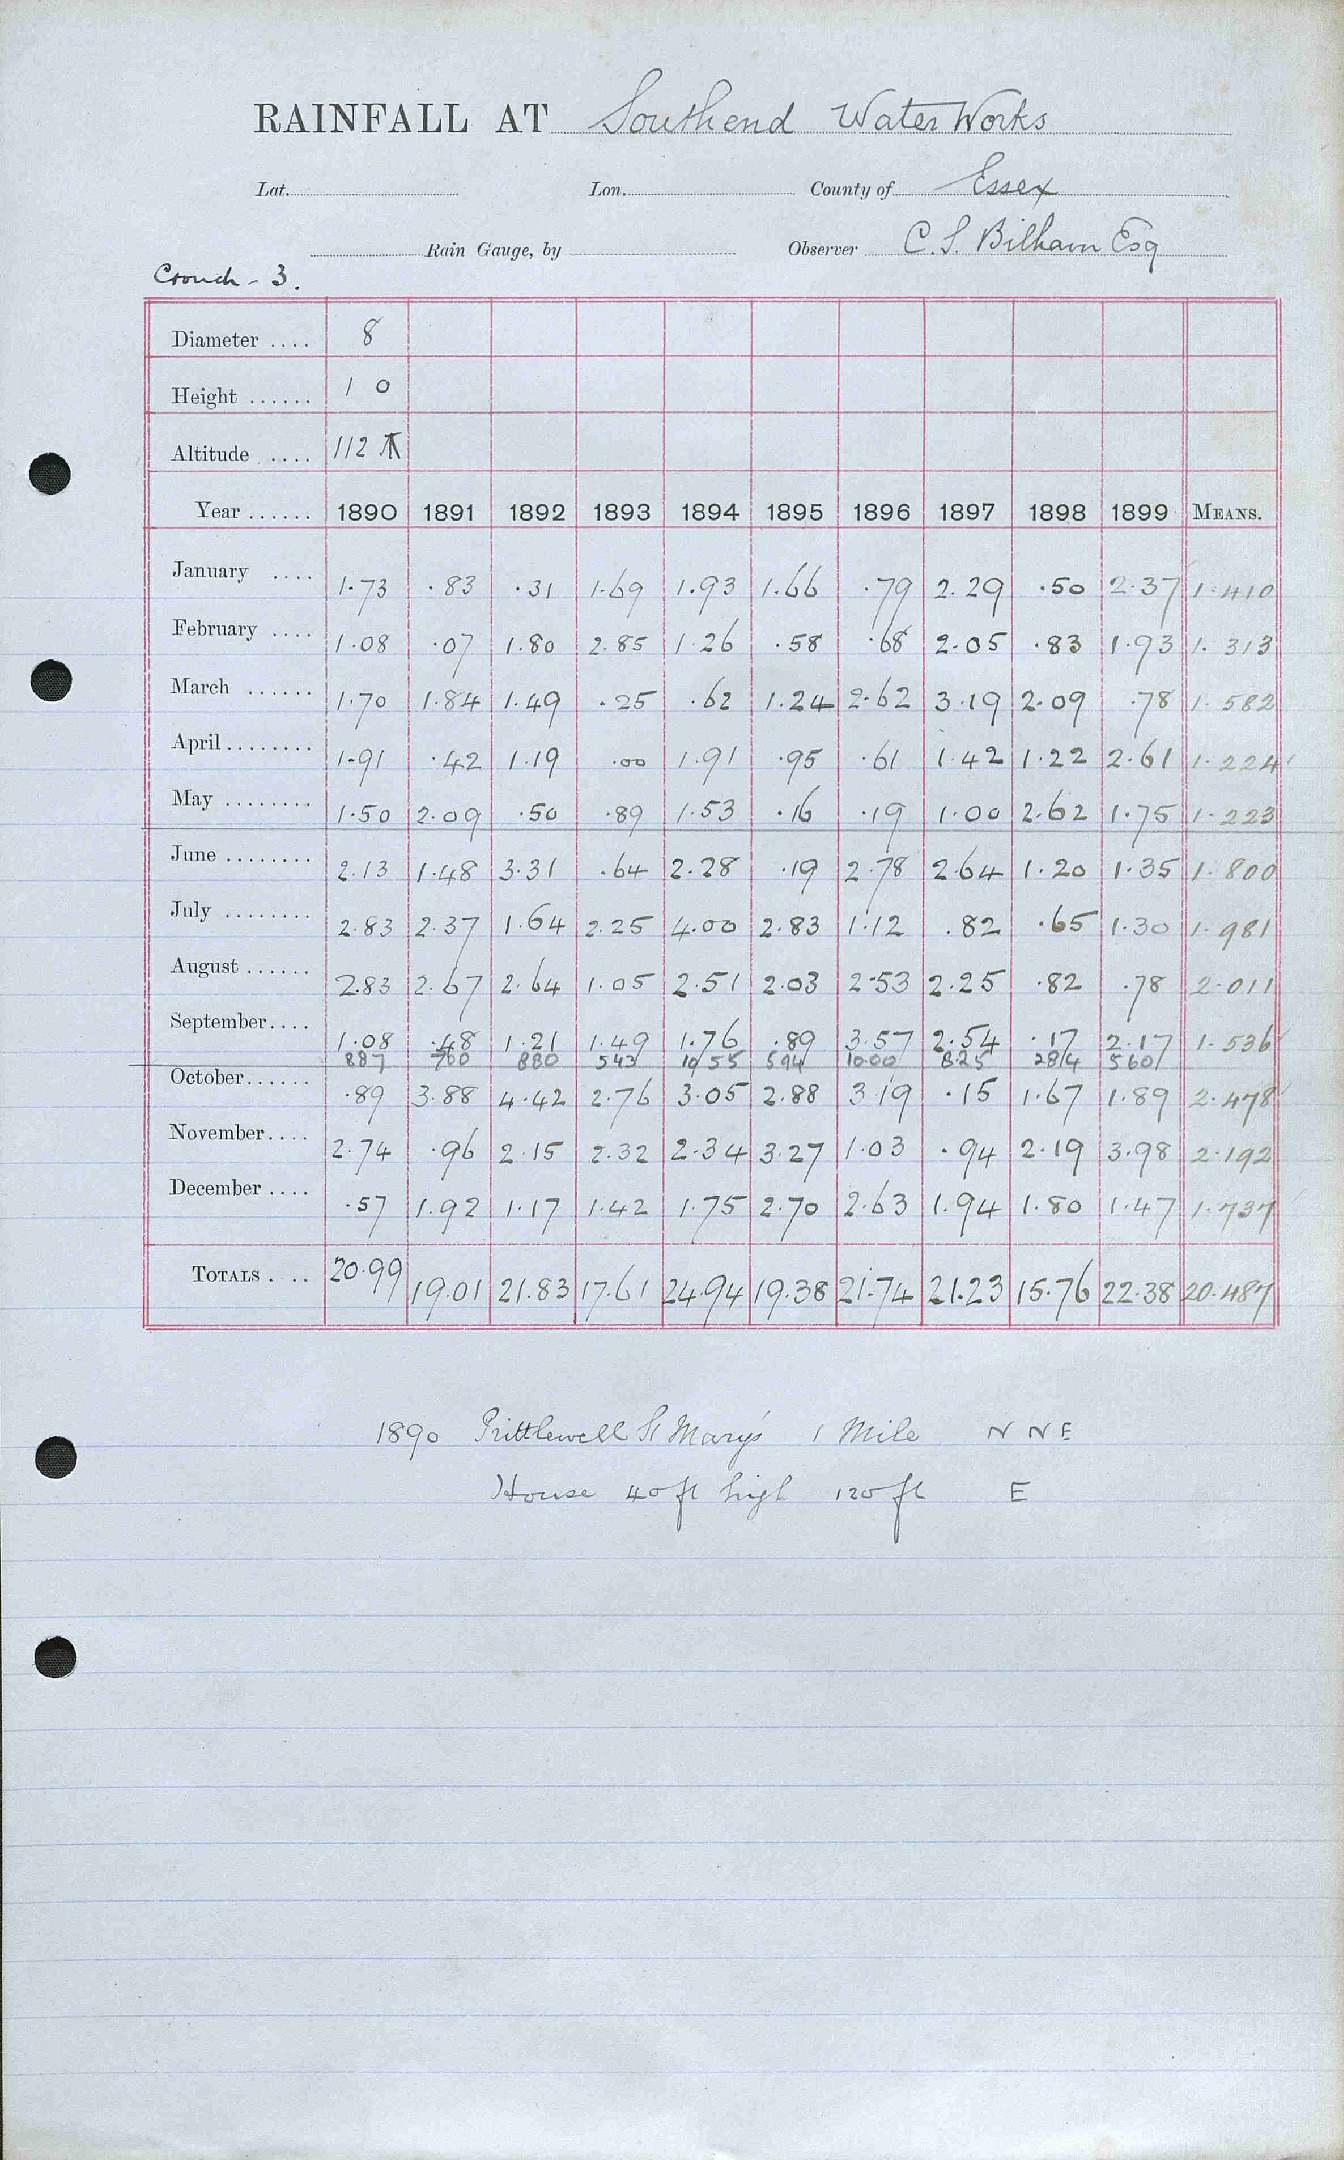 RAINFALL AT Southend Water Works
Lat. Lon. County of Essex
Rain Gauge, by Observer C. S. Bilham Esq
Crouch - 3.
Diameter .... 8
Height ...... 1 0
Altitude .... 112
Year ...... 1890 1891 1892 1893 1894 1895 1896 1897 1898 1899 MEANS.
January .... 1.73 .83 .31 1.69 1.93 1.66 .79 2.29 .50 2.37 1.410
February .... 1.08 .07 1.80 2.85 1.26 .58 .68 2.05 .83 1.93 1.313
March ...... 1.70 1.84 1.49 .25 .62 1.24 2.62 3.19 2.09 .78 1.582
April ........ 1.91 .42 1.19 .00 1.91 .95 .61 1.42 1.22 2.61 1.224
May ........ 1.50 2.09 .50 .89 1.53 .16 .19 1.00 2.62 1.75 1.223
June ........ 2.13 1.48 3.31 .64 2.28 .19 2.78 2.64 1.20 1.35 1.800
July ........ 2.83 2.37 1.64 2.25 4.00 2.83 1.12 .82 .65 1.30 1.981
August ...... 2.83 2.67 2.64 1.05 2.51 2.03 2.53 2.25 .82 .78 2.011
September.... 1.08 .48 1.21 1.49 1.76 .89 3.57 2.54 .17 2.17 1.536
887 700 880 543 1055 594 1000 825 284 560
October...... .89 3.88 4.42 2.76 3.05 2.88 3.19 .15 1.67 1.89 2.478
November.... 2.74 .96 2.15 2.32 2.34 3.27 1.03 .94 2.19 3.98 2.192
December .... .57 1.92 1.17 1.42 1.75 2.70 2.63 1.94 1.80 1.47 1.737
TOTALS .... 20.99 19.01 21.83 17.61 24.94 19.38 21.74 21.23 15.76 22.38 20.487
1890 Prittlewell St Mary's 1 Mile N N E
House 40 ft high 120 ft E